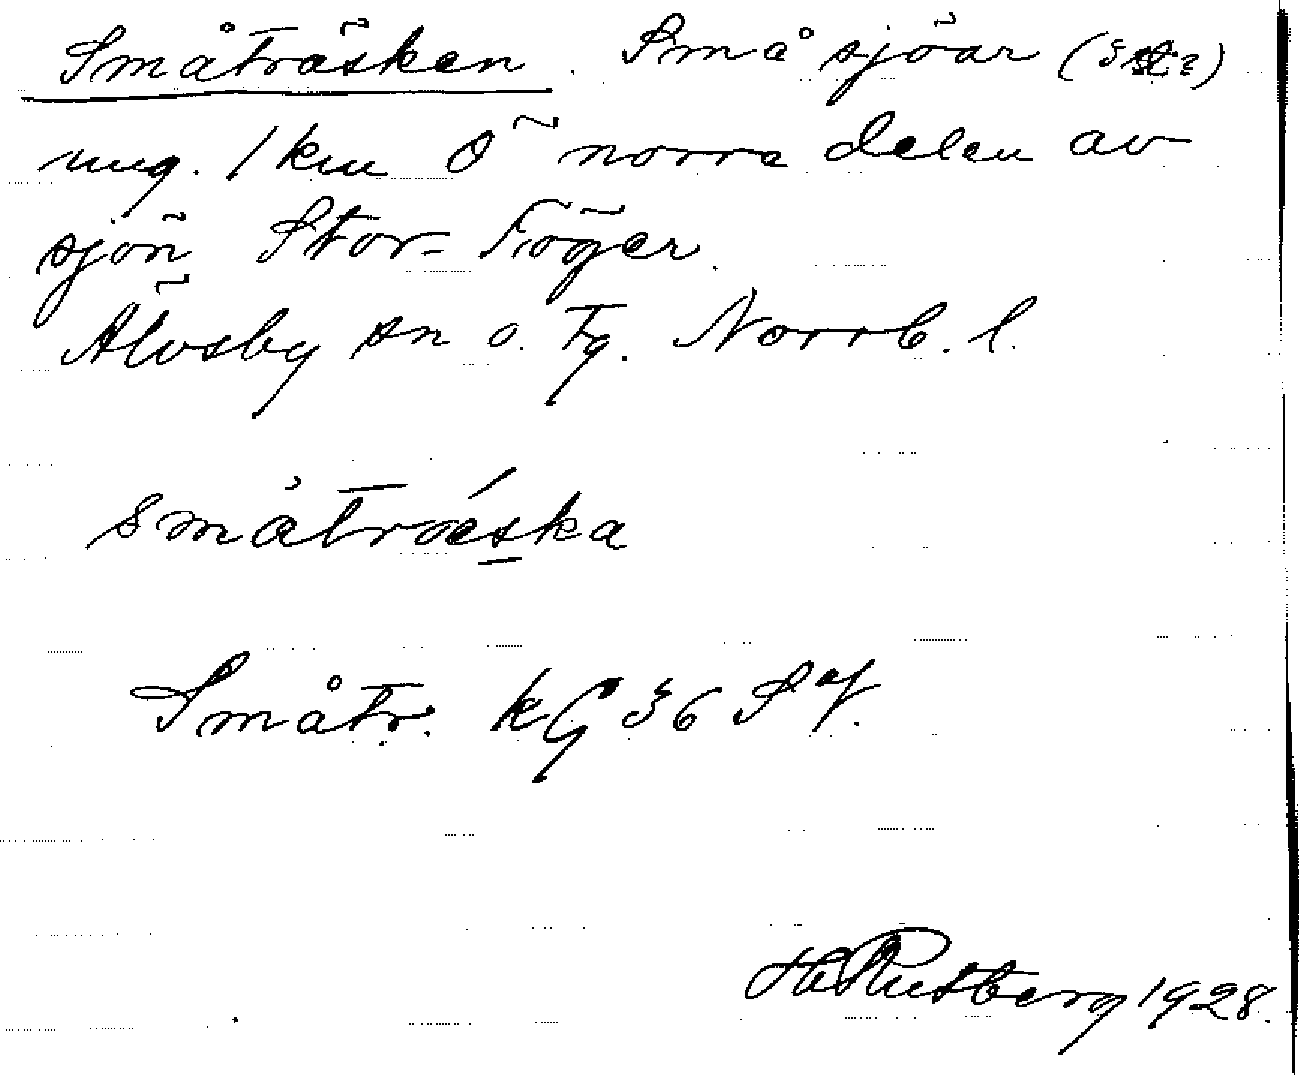 Småträsken. Små sjöar (3 st.)
ung. 1 km Ö norra delen av
sjön Stor-Töger.
Älvsby sn o. tg. Norrb. l.
småtræska
Småtr. kG 36 SV.
H. Rutberg 1928.